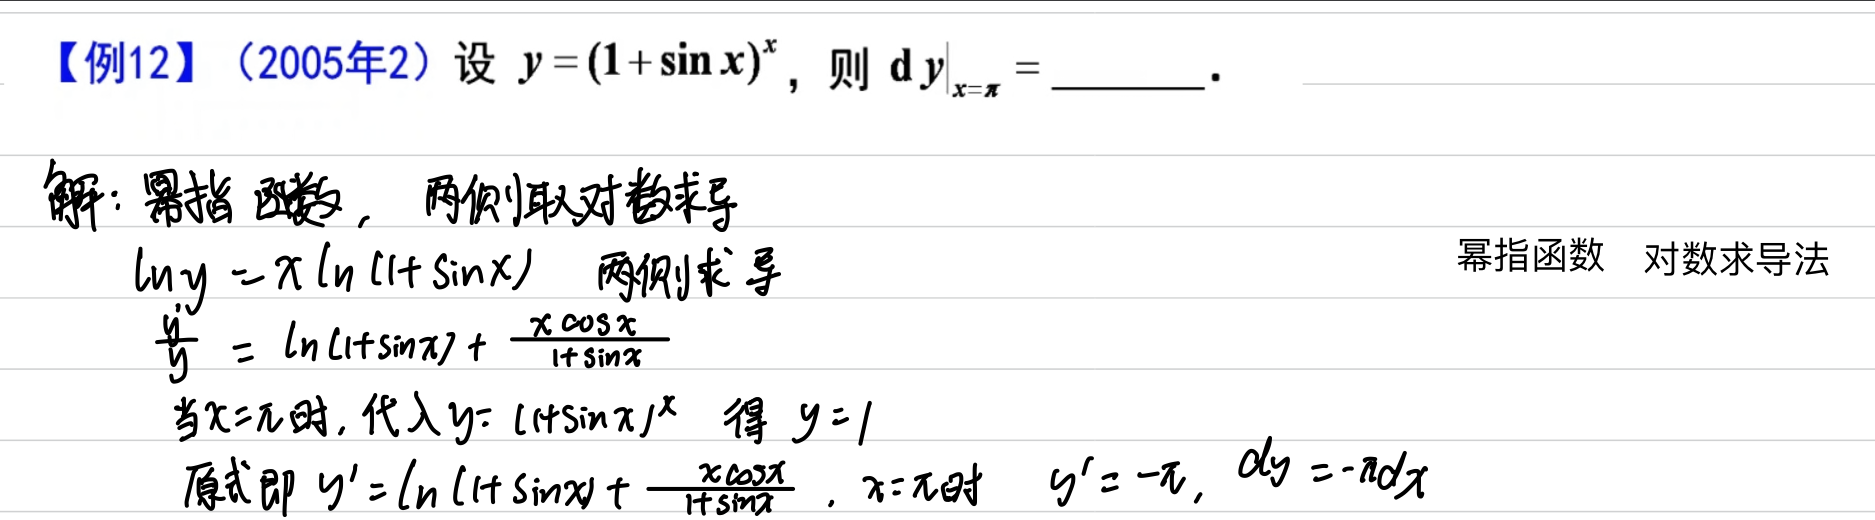 【例12】（2005年2）设 y=(1+sin x)^x，则 dy|_{x=π} = ______.
解：幂指函数，两侧取对数求导
ln y = x ln(1+sin x) 两侧求导
幂指函数 对数求导法
y'/y = ln(1+sin x) + (x cos x)/(1+sin x)
当x=π时，代入y=(1+sin x)^x 得 y=1
原式即 y'=ln(1+sin x)+(x cos x)/(1+sin x) . x=π时 y'=-π, dy=-πdx